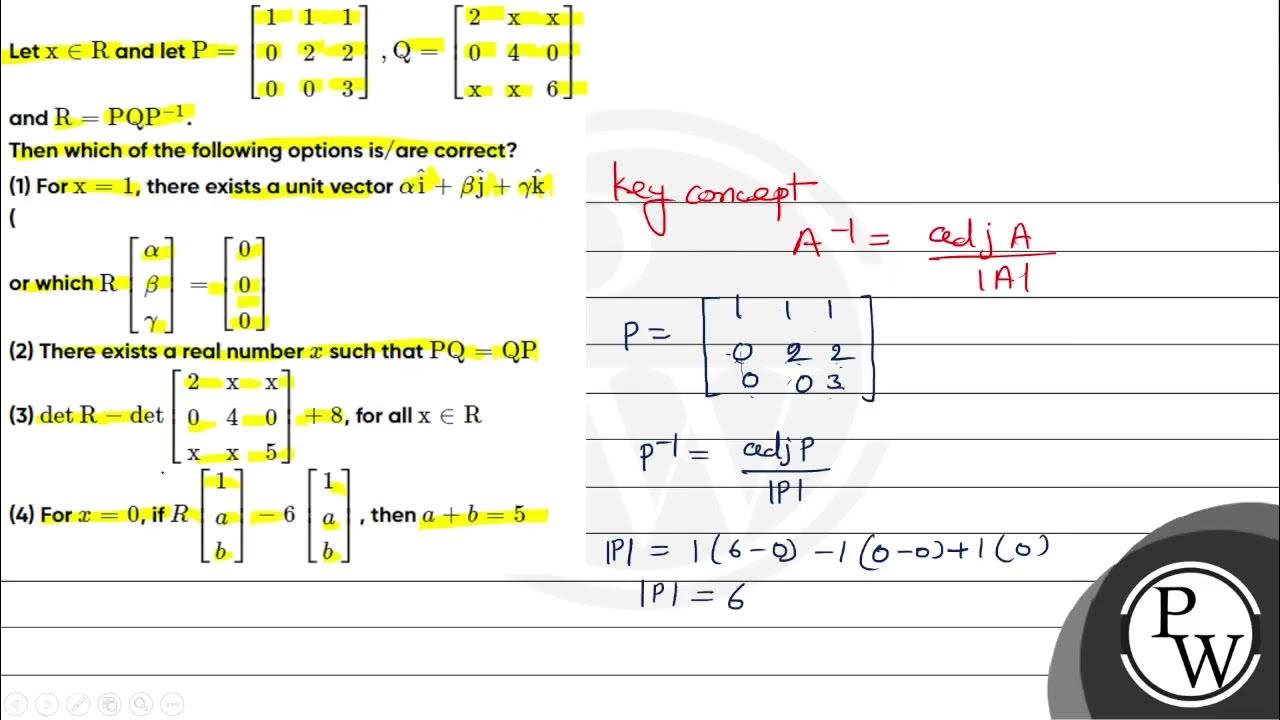 Let x ∈ R and let P = [1 1 1; 0 2 2; 0 0 3] , Q = [2 x x; 0 4 0; x x 6]
and R = PQP⁻¹.
Then which of the following options is/are correct?
(1) For x = 1, there exists a unit vector αî + βĵ + γk̂
(
or which R [α; β; γ] = [0; 0; 0]
(2) There exists a real number x such that PQ = QP
(3) det R − det [2 x x; 0 4 0; x x 5] + 8, for all x ∈ R
(4) For x = 0, if R [1; a; b] − 6 [1; a; b] , then a + b = 5
key concept
A⁻¹ = adj A / |A|
P = [1 1 1; 0 2 2; 0 0 3]
P⁻¹ = adj P / |P|
|P| = 1(6−0) −1(0−0)+1(0)
|P| = 6
P
W